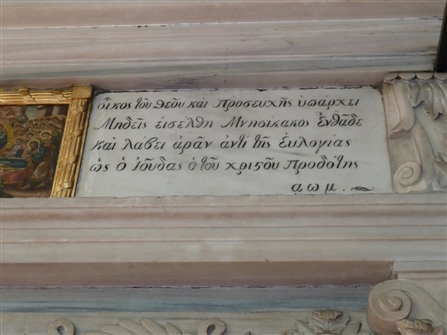 οἶκος τοῦ Θεοῦ και Προσευχῆς ὑπάρχει
Μηδεὶς εἰσέλθη Μνησίκακος ἐνθάδε
καὶ λάβει ἀρὰν ἀντὶ τῆς εὐλογίας
ὡς ὁ ἰούδας ὁ τοῦ χριστοῦ Προδότης
αωμ.